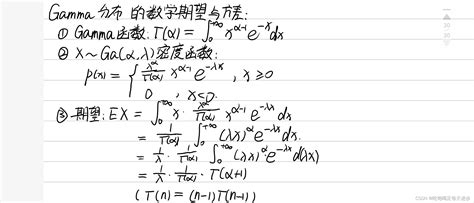 Gamma 分布的数字期望与方差:
① Gamma函数: T(α) = ∫₀^{+∞} x^{α-1} e^{-x} dx
② X~Ga(α,λ) 密度函数:
p(x) = { x^α/T(α) x^{α-1} e^{-λx}, x≥0
0, x<0.
③ 期望: EX = ∫₀^{+∞} x · x^α/T(α) x^{α-1} e^{-λx} dx
= 1/T(α) ∫₀^{+∞} (λx)^α e^{-λx} dx.
= 1/λ · 1/T(α) ∫₀^{+∞} (λx)^α e^{-λx} d(λx)
= 1/λ · 1/T(α) · T(α+1)
(T(n) = (n-1)T(n-1))